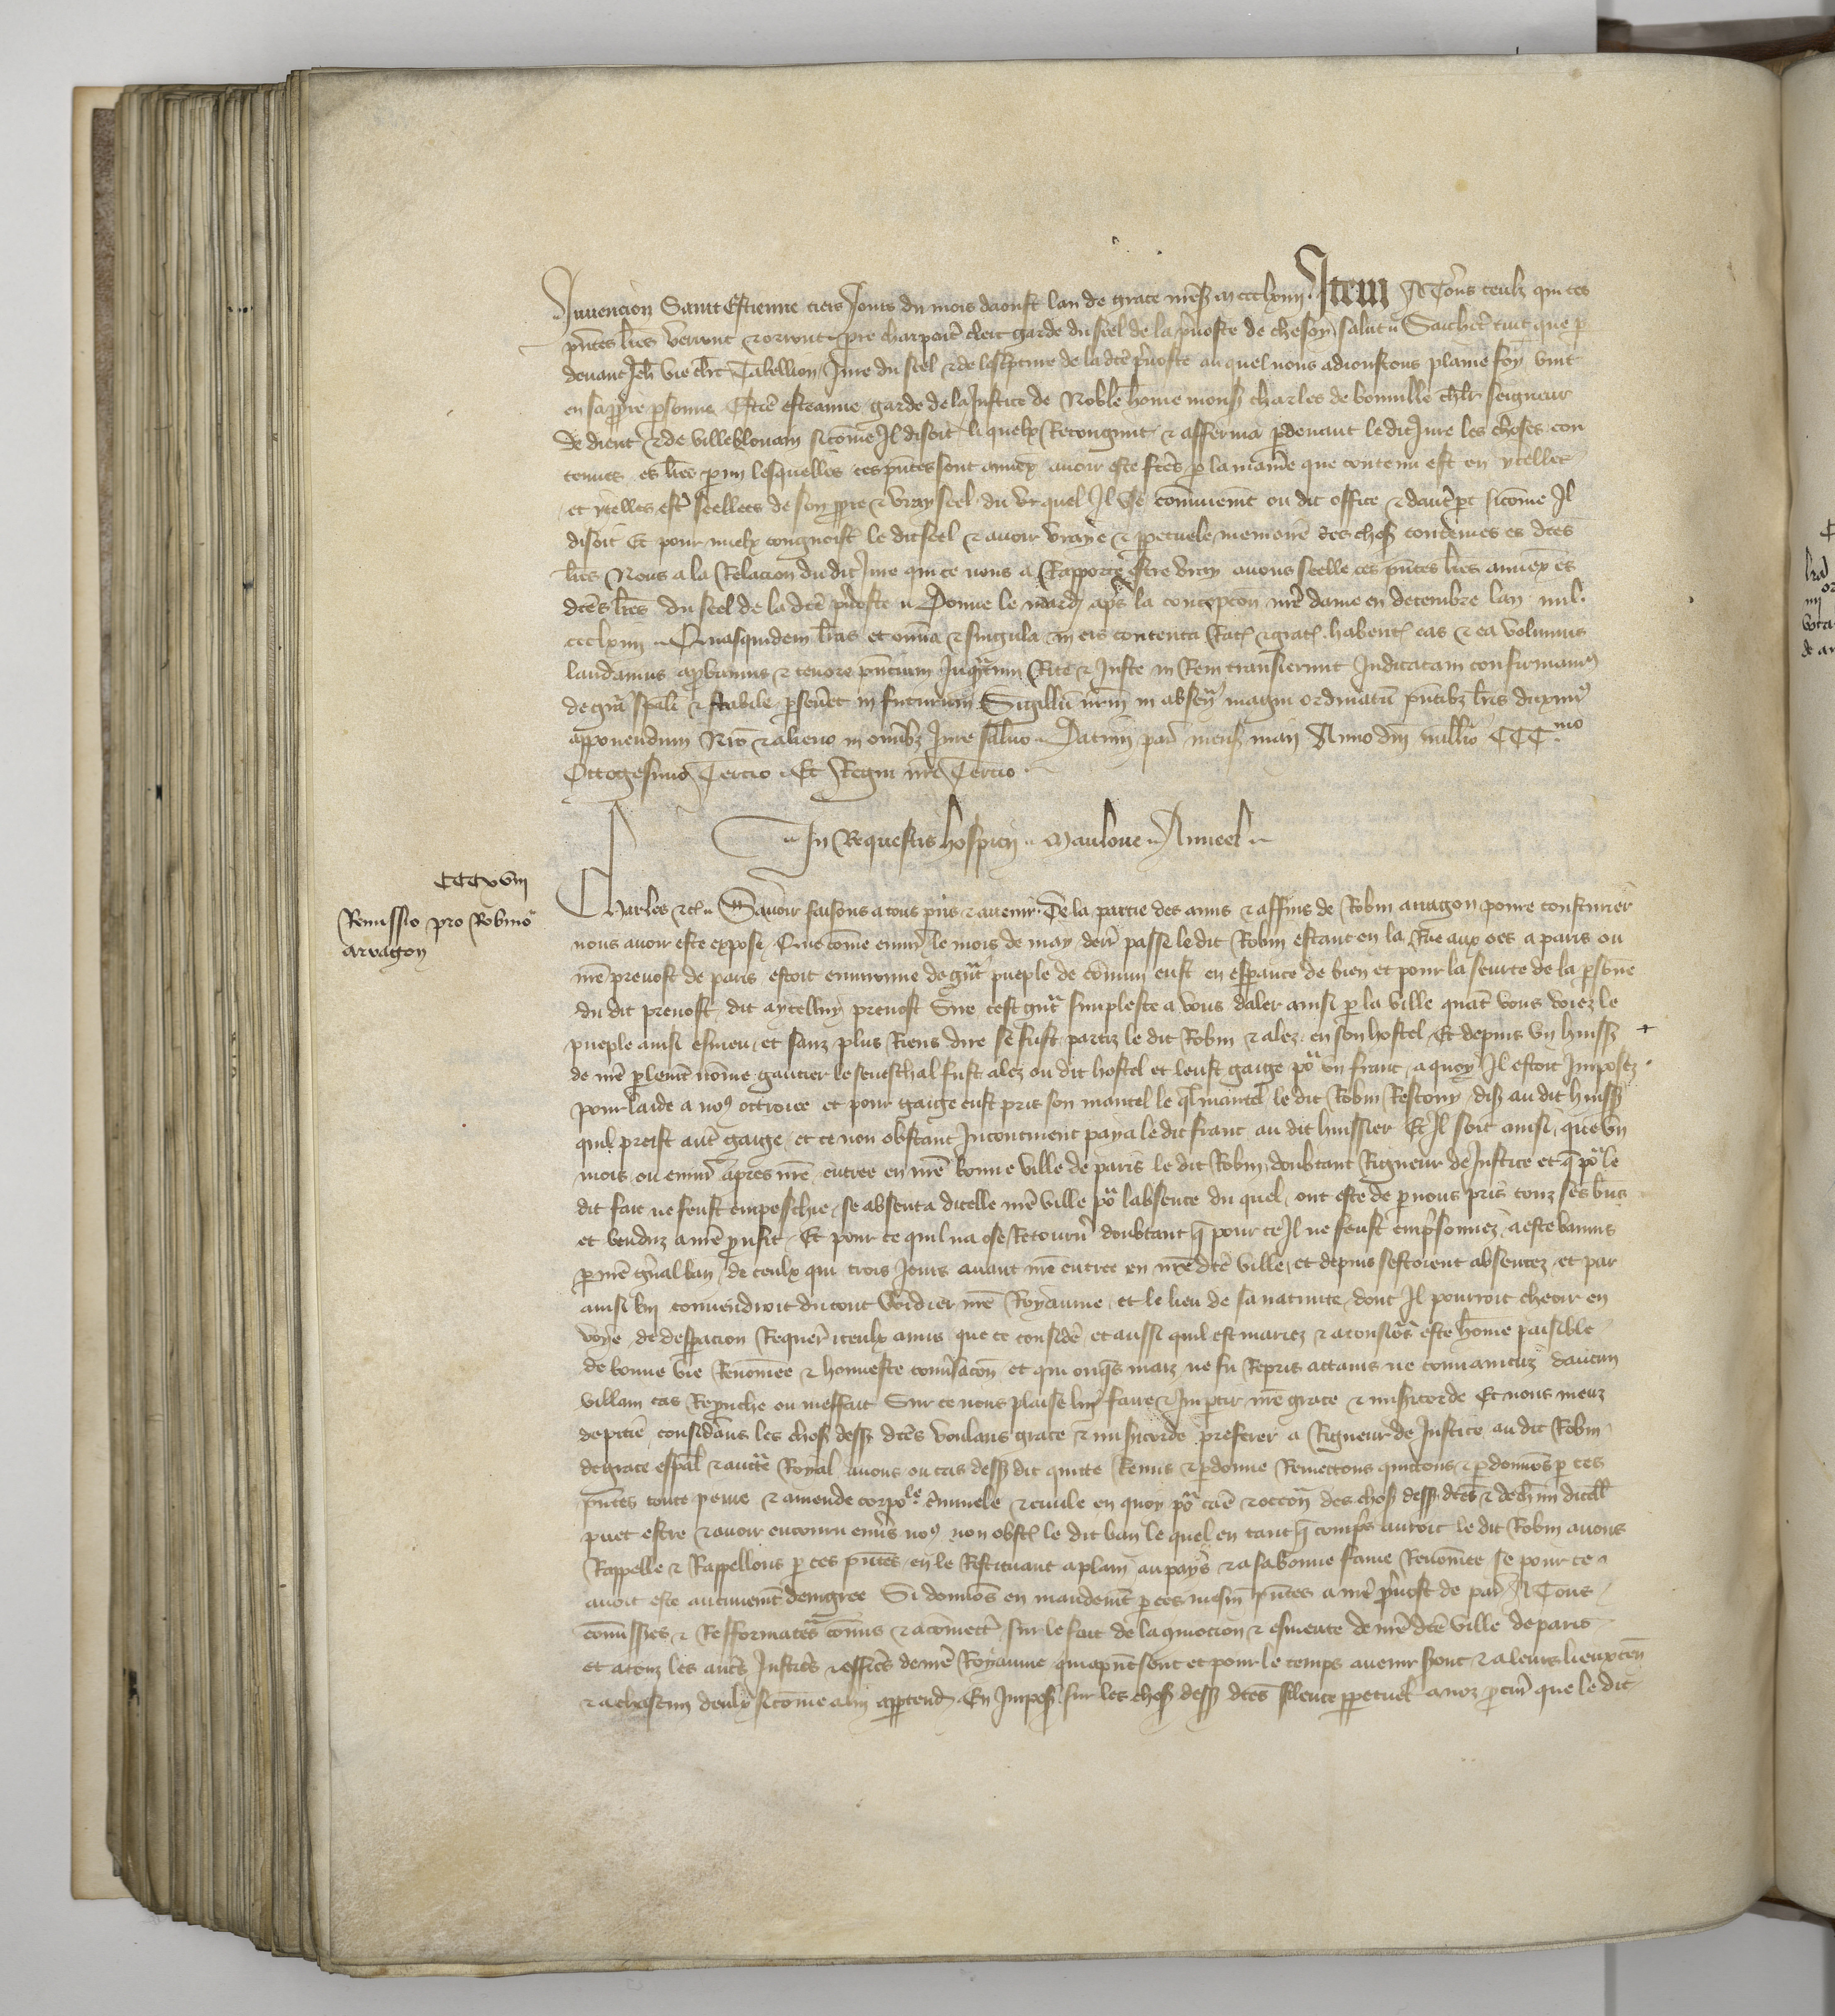 Invencion Saint Estienne tiers Jour du mois daoust lan de grace mil ccc lxiiii. Item A Tous ceulx qui ces
pñtes lr̃es verront & orront pre charpent̃ clerc garde du seel de la p̃voste de chesoy salut Saichẽt tuit que p
devant Jeh̃ vie cl̃c Tabellion Jure du seel & de lescripture de la dcẽ p̃voste au quel nous adioustons plaine foy vint
en sa pp̃re p̃sonne Estiẽ esteanne garde de la Justice de Noble hom̃e mons̃ charles de bouville chl̃r seigneur
de dient & de villeblouain sicom̃e Il disoit li quelx Recongnut & afferma p̃devant le dit Jure les choses con
tenues es lr̃es p̃mi lesquelles ces pñtes sont annex̃ avoir este fctẽs p̃ la manĩe que contenu est en ycelles
et ycelles estr̃ seellees de son pp̃re & vray seel du quel Il use com̃unem̃t ou dit office & dautr̃ pt̃ sicom̃e Il
disoit Et pour mielx congnoistr̃ le dit seel & avoir vraye & pp̃etuele memoire des chos̃ contenues es dcẽs
lr̃es Nous a la Relacion du dit Jure qui ce nous a Rapporte estre vray avons seelle ces pñtes lr̃es annex̃ es
dcẽs lr̃es du seel de la dcẽ p̃voste Donne le mardj ap̃s la concepc̃on nr̃e dame en decembre lan mil.
ccclxiiij Quasquidem lr̃as et om̃ia & singula in eis contenta Rat̃ & grat̃ habent̃ eas & ea volumus
laudamus app̃bamus & tenore pñtium Inq̃ntum Rite & Juste in Rem transierunt Judicatam confirmam9
de grã sp̃ali & stabile p̃sev̾et in futurum Sigillũ nr̃m in absen̾ magni ordinatũ pñtibz lr̃is duxim9
apponendum Nr̃o & alieno in om̃ibz Jure salvo Datum par̃ mens̃ maij Anno dñi millõ CCC.mo
Octogesimo Tercio Et Regni nr̃i Tercio
In Requestis hospicij Mauloue Anneel
CCCxviij
Remissio pro Robino
arragon
Charles &c̃ Savoir faisons a tous pñs & avenir. De la partie des amis & affins de Robin arragon povre cousturier
nous avoir este expose Que com̃e envir̃ le mois de may derr̃ passe le dit Robin estant en la Rue aux oes a paris ou
nr̃e prevost de paris estoit environne de g̃nt pueple de com̃un eust en esperance de bien et pour la seurte de la p̃sonne
du dit prevost dit aycelluy prevost Sire cest g̃nt simplesce a vous daler ainsi p̃ la ville quãt vous voiez le
pueple ainsi esmeu et sanz plus Riens dire se fust partiz le dit Robin & alez en son hostel Et depuis un huiss̃
de nr̃e p̃lemẽt nom̃e gautier le seneschal fust alez ou dit hostel et leust gaige po̾ un franc a quoy Il estoit Imposez
pour laide a no9 ottroiee et pour gaige eust pris son mantel le q̃l mantel le dit Robin Rescouy dis̃ au dit huiss̃
quil preist autr̃ gaige et ce non obstant Incontinent paya le dit franc au dit huissier Et Il soit ainsi que un
mois ou envir̃ apres nr̃e entree en nr̃e bonne ville de paris le dit Robin doubtant Rigueur de Justice et q̃ po̾ le
dit fait ne feust empeschie se absenta dicelle nr̃e ville po̾ labsence du quel ont este de p̃ nous pris touz ses biẽs
et venduz a nr̃e prouffit Et pour ce quil na ose Retourn̾ doubtant q̃ pour ce Il ne feust emp̃sonnez a este bannis
p̃ nr̃e gñal ban de ceulx qui trois Jours avant nr̃e entree en nr̃e dcẽ ville et depuis sestoient absentez et par
ainsi luy convendroit du tout vuidier nr̃e Royaume et le lieu de sa nativite dont Il pourroit cheoir en
voye de desp̃acion Requer̃ iceulx amis que ce consider̃e et aussi quil est mariez & a tousio̾s este hom̃e paisible
de bonne vie Renom̃ee & honneste conv̾sac̃on et qui onq̃s maiz ne fu Repris attains ne convaincuz daucun
villain cas Reprouche ou meffait Sur ce nous plaise luy faire & Imp̃tir nr̃e grace & mis̾icorde Et nous meuz
de pitie consider̃ans les chos̃ dess̃ dcẽs voulans grace & mis̾icorde preferer a Rigueur de Justice au dit Robin
de grace esp̃al & auctr̃e Royal avons ou cas dess̃ dit quitte Remis & p̃donne Remettons quittons & p̃donnõs p̃ ces
pñtes toute peine & amende corpo̾le c̃minele & civile en quoy po̾ cãe & occõn des chos̃ dess̃ dcẽs & de ch̃un dicell̃
puet estre & avoir encouru env̾s no9 non obst̃ le dit ban le quel en tant q̃ comp̃s auroit le dit Robin avons
Rappelle & Rappellons p̃ ces pñtes en le Restituant a plain au pays & a sa bonne fame Renom̃ee se pour ce
avoit este aucunem̃t denigree Si donnõs en mandem̃t p̃ ces mesm̃ pñtes a nr̃e p̃vost de par̃ A Tous
com̃issr̃es & Refformate̾s com̃is & a com̃ectr̃ sur le fait de la com̃ocion & esmeute de nr̃e dcẽ ville de paris
et a touz les autr̃s Justic̾s & offic̾s de nr̃e Royaume qui a pñt sont et pour le temps avenir seront & a leurs lieuxteñ
& a chascun deulx sicom̃e a lui app̃tendr̃ En Impos̃ sur les chos̃ dess̃ dcẽs silence pp̃etuel a noz p̃cur̃ que le dit